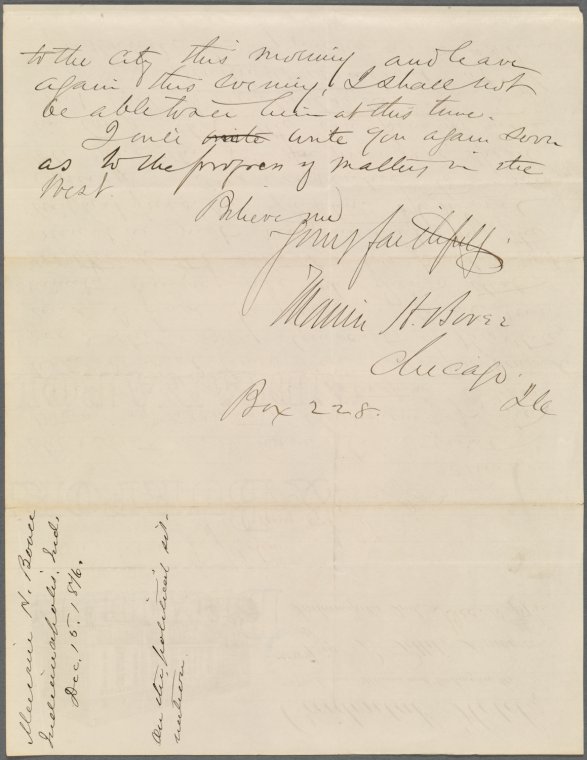 to the city this morning and leave
again this evening, I shall not
be able to see him at this time.
I will write write you again soon
as to the progress of matters in the
West.
Believe me
Yours faithfully
H. Bovee
Chicago.
Ills
Box 228.
H. Bovee
Indianapolis, Ind.
Dec. 15. 1876.
On the political sit-
uation.